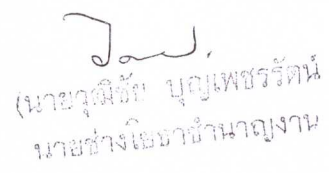 (นายวุฒิชัย บุญเพชรรัตน์
นายช่างโยธาชำนาญงาน